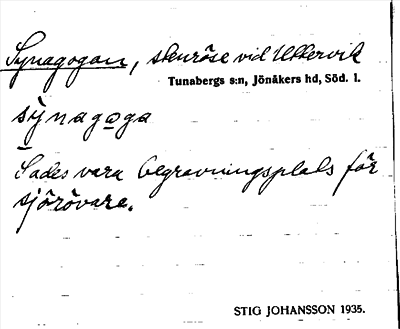 Synagogan, stenröse vid Uttervik
Tunabergs s:n, Jönåkers hd, Söd. l.
synagoga
Sades vara begravningsplats för
sjörövare.
STIG JOHANSSON 1935.